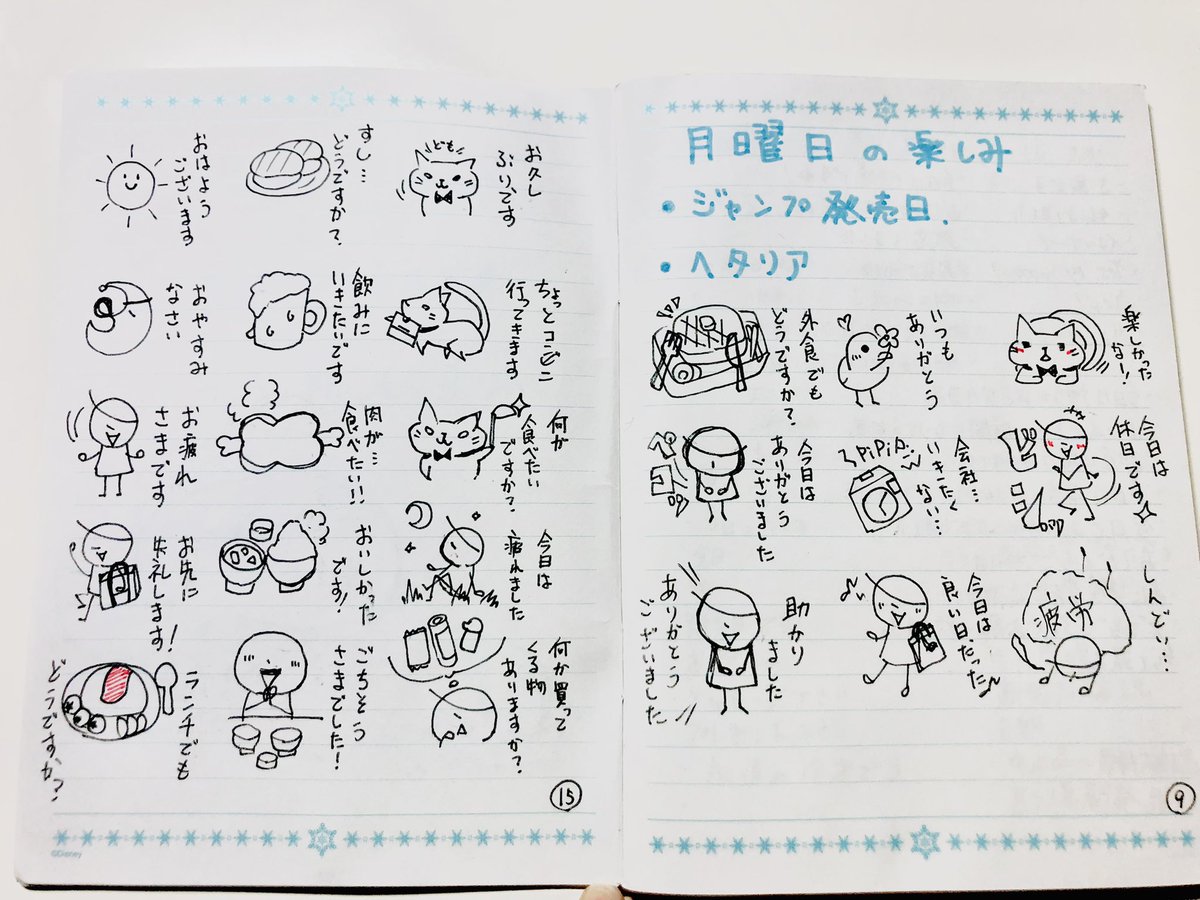 おはよう
ございます
すし…
どうですか?
ども
お久し
ぶり、です
おやすみ
なさい
飲みに
いきたいです
ちょっとコンビニ
行ってきます
お疲れ
さまです
肉が…
食べたい!!
何か
食べたい
ですか?
お先に
失礼します!
おいしかった
です!
今日は
疲れました
ランチでも
どうですか?
ごちそう
さまでした!
何か買って
くる物
ありますか?
15
©Disney
月曜日の楽しみ
・ジャンプ発売日、
・ヘタリア
外食でも
どうですか?
いつも
ありがとう
楽しかった
なー!
今日は
ありがとう
ございました
PiPiPi
会社…
いきたく
ない…
今日は
休日です
助かり
ました
ありがとう
ございました
今日は
良い日だった
しんどい…
疲労
9